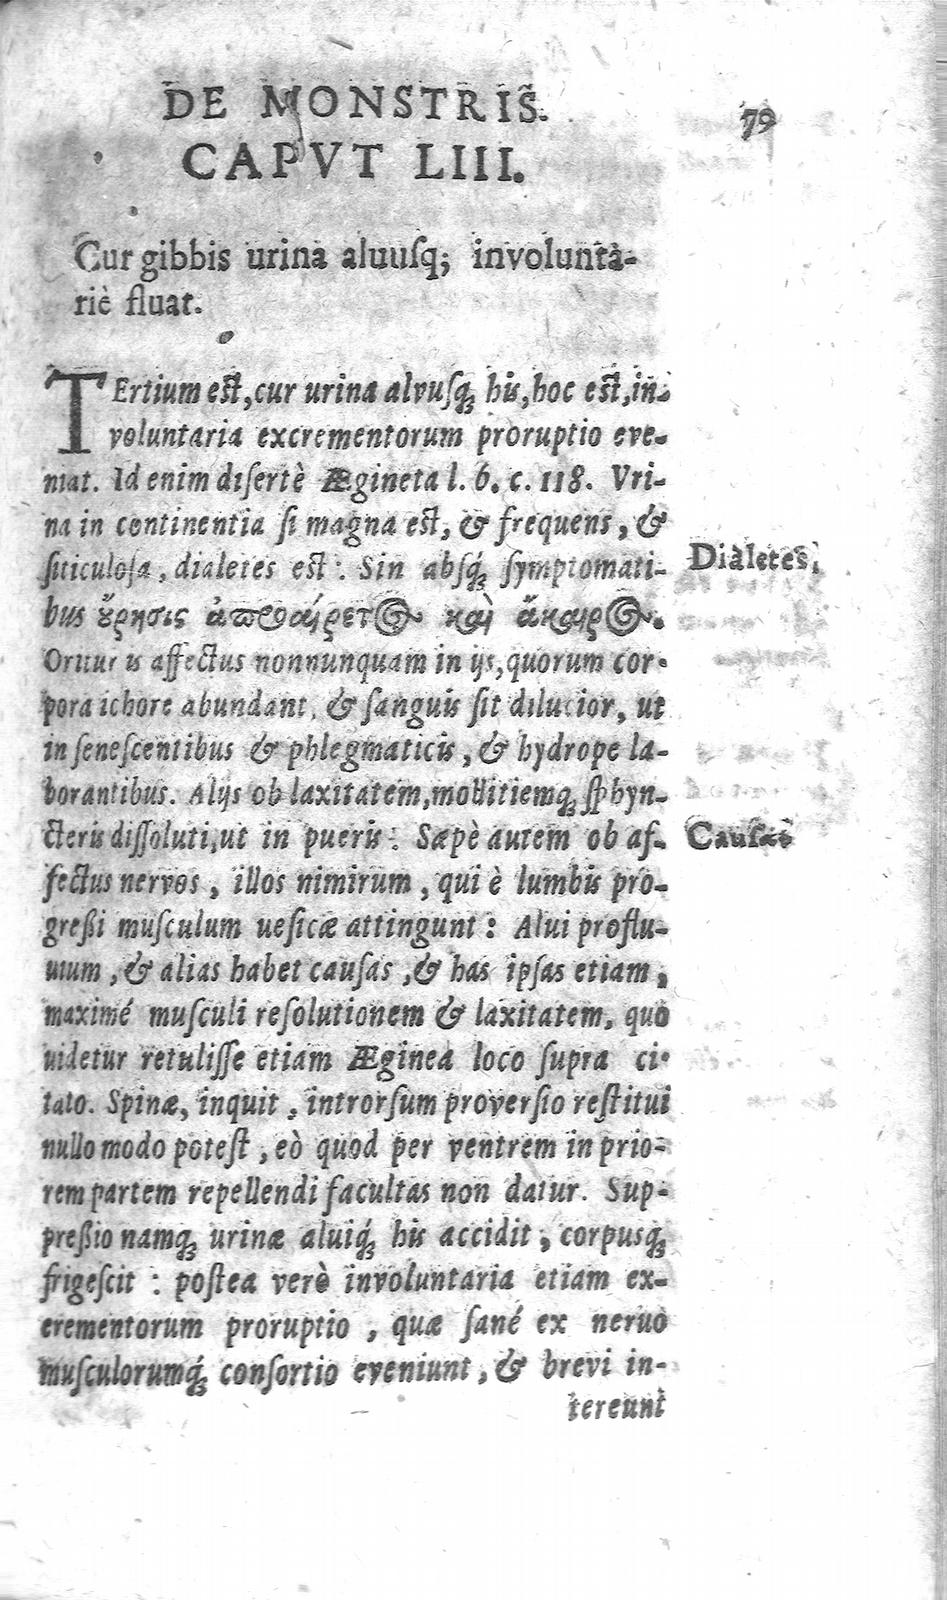 DE MONSTRIS.
79
CAPVT LIII.
Cur gibbis urina aluusq; involunta-
riè fluat.
TErtium est, cur urina alvusq; his, hoc est, in-
voluntaria excrementorum proruptio eve-
niat. Id enim disertè Ægineta l. 6. c. 118. Vri-
na in continentia si magna est, & frequens, &
siticulosa, dialetes est: Sin absq́; symptomati-
Dialetes.
bus ȣ̓́ρησις ἀπροαίρετος καὶ ἄκαιρος.
Oritur is affectus nonnunquam in ijs, quorum cor-
pora ichore abundant, & sanguis sit dilucior, ut
in senescentibus & phlegmaticis, & hydrope la-
borantibus. Alijs ob laxitatem, mollitiemq; sphyn-
cteris dissoluti, ut in pueris: Sæpè autem ob af-
Causæ
fectus nervos, illos nimirum, qui è lumbis pro-
greßi musculum uesicæ attingunt: Alui proflu-
uium, & alias habet causas, & has ipsas etiam,
maximé musculi resolutionem & laxitatem, quo
uidetur retulisse etiam Æginea loco supra ci-
tato. Spinæ, inquit, introrsum proversio restitui
nullo modo potest, eò quod per ventrem in prio-
rem partem repellendi facultas non datur. Sup-
preßio namq; urinæ aluiq́; his accidit, corpusq́;
frigescit: postea verò involuntaria etiam ex-
crementorum proruptio, quæ sané ex neruo
musculorumq́; consortio eveniunt, & brevi in-
tereunt